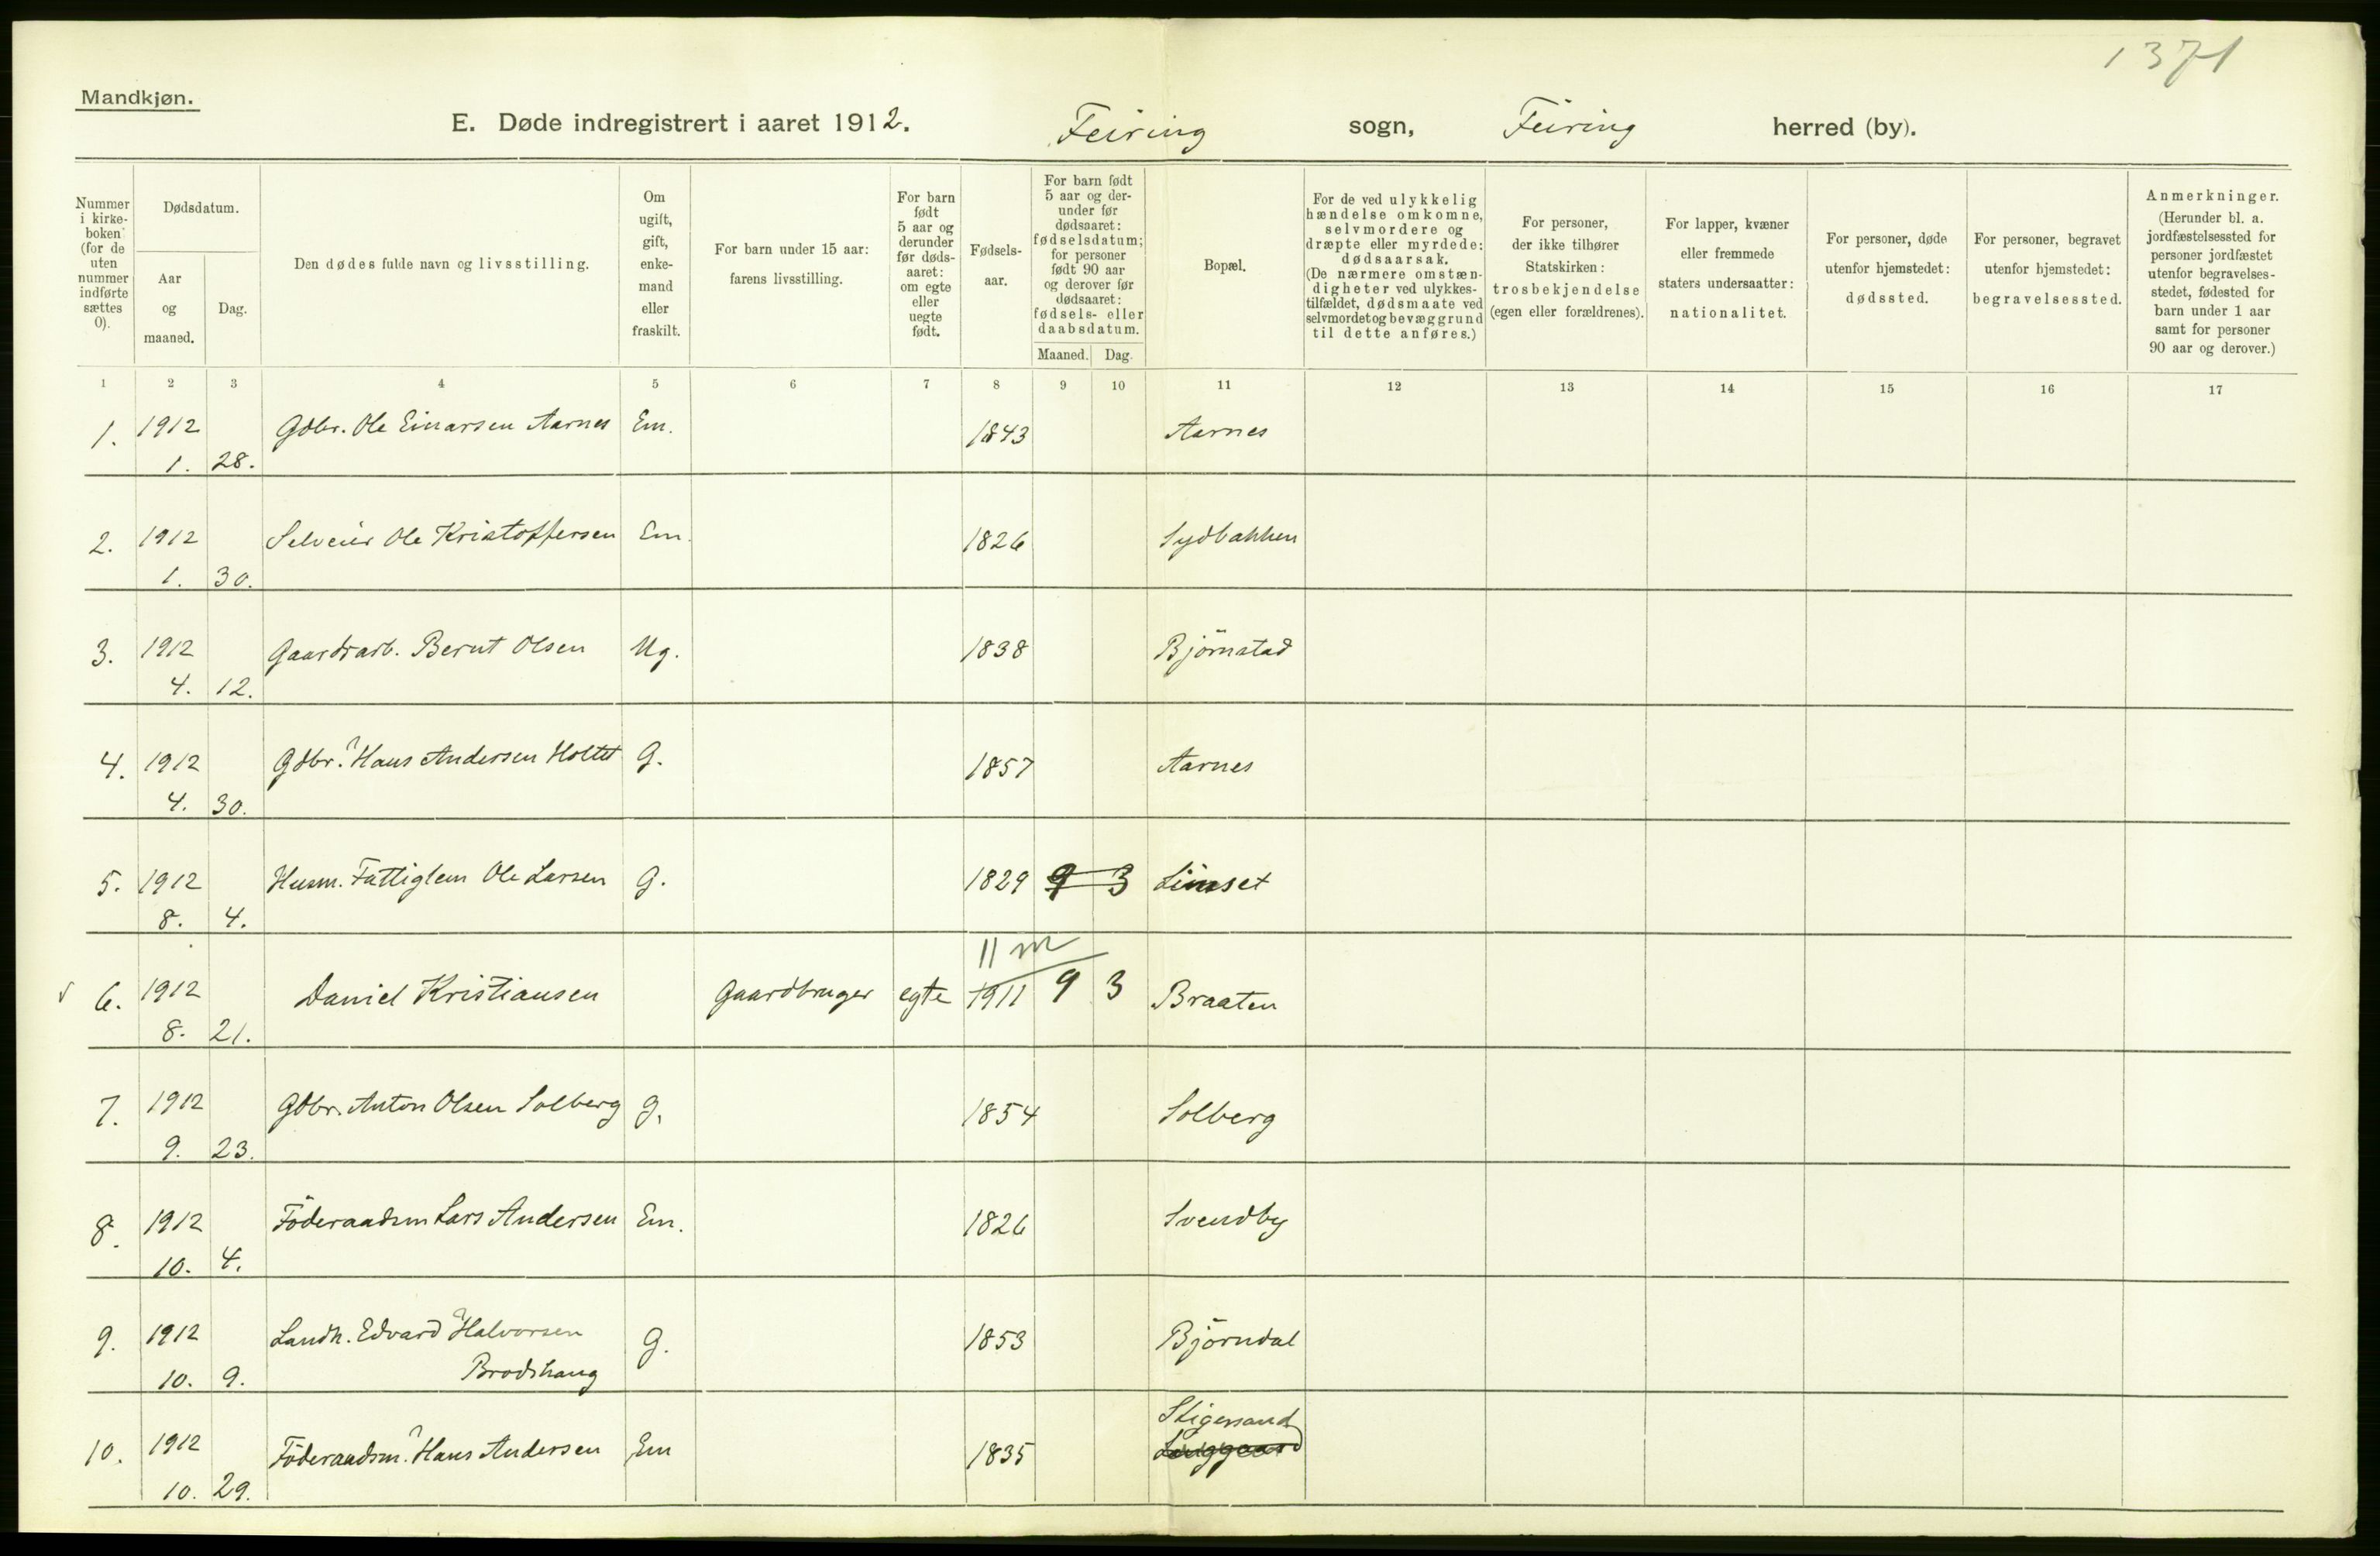 1371
Mandkjøn.
E. Døde indregistrert i aaret 1912. Feiring sogn, Feiring herred (by).
Nummer i kirke- boken (for de uten nummer indførte sættes 0).
Dødsdatum.
Aar og maaned.
Dag.
Den dødes fulde navn og livsstilling.
Om ugift, gift, enke- mand eller fraskilt.
For barn under 15 aar: farens livsstilling.
For barn født 5 aar og derunder før døds- aaret: om egte eller uegte født.
Fødsels- aar.
For barn født 5 aar og der- under før dødsaaret: fødselsdatum; for personer født 90 aar og derover før dødsaaret: fødsels- eller daabsdatum.
Maaned. Dag.
Bopæl.
For de ved ulykkelig hændelse omkomne, selvmordere og dræpte eller myrdede: dødsaarsak. (De nærmere omstæn- digheter ved ulykkes- tilfældet, dødsmaate ved selvmordet og bevæggrund til dette anføres.)
For personer, der ikke tilhører Statskirken: trosbekjendelse (egen eller forældrenes).
For lapper, kvæner eller fremmede staters undersaatter: nationalitet.
For personer, døde utenfor hjemstedet: dødssted.
For personer, begravet utenfor hjemstedet: begravelsessted.
Anmerkninger. (Herunder bl. a. jordfæstelsessted for personer jordfæstet utenfor begravelses- stedet, fødested for barn under 1 aar samt for personer 90 aar og derover.)
1 2 3 4 5 6 7 8 9 10 11 12 13 14 15 16 17
1. 1912 Gdbr. Ole Einarsen Aarnes Em. 1843 Aarnes
1. 28.
2. 1912 Selveier Ole Kristoffersen Em. 1826 Sydbakken
1. 30.
3. 1912 Gaardsarb. Bernt Olsen Ug. 1838 Björnstad
4. 12.
4. 1912 Gdbr. Hans Andersen Holtet G. 1857 Aarnes
4. 30.
5. 1912 Husm. Fattiglem Ole Larsen G. 1829 9 3 Linset
8. 4.
11 m
6. 1912 Daniel Kristiansen Gaardbruger egte 1911 9 3 Braaten
8. 21.
7. 1912 Gdbr. Anton Olsen Solberg G. 1854 Solberg
9. 23.
8. 1912 Föderaadsm Lars Andersen Em. 1826 Svendby
10. 4.
9. 1912 Landh. Edvard Halvorsen G. 1853 Björndal
10. 9. Brodshaug
Stigersand
10. 1912 Föderaadsm. Hans Andersen Em 1835 Lenggaard
10. 29.